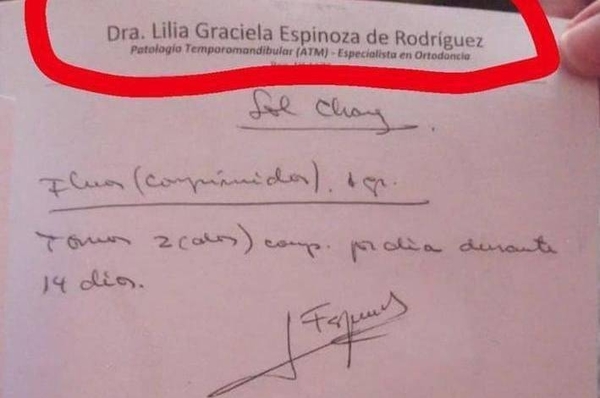 Dra. Lilia Graciela Espinoza de Rodríguez
Patología Temporomandibular (ATM) - Especialista en Ortodoncia
Sol Chang
(comprimidos).
Tomar 2 (dos) comp. por día durante
14 días.